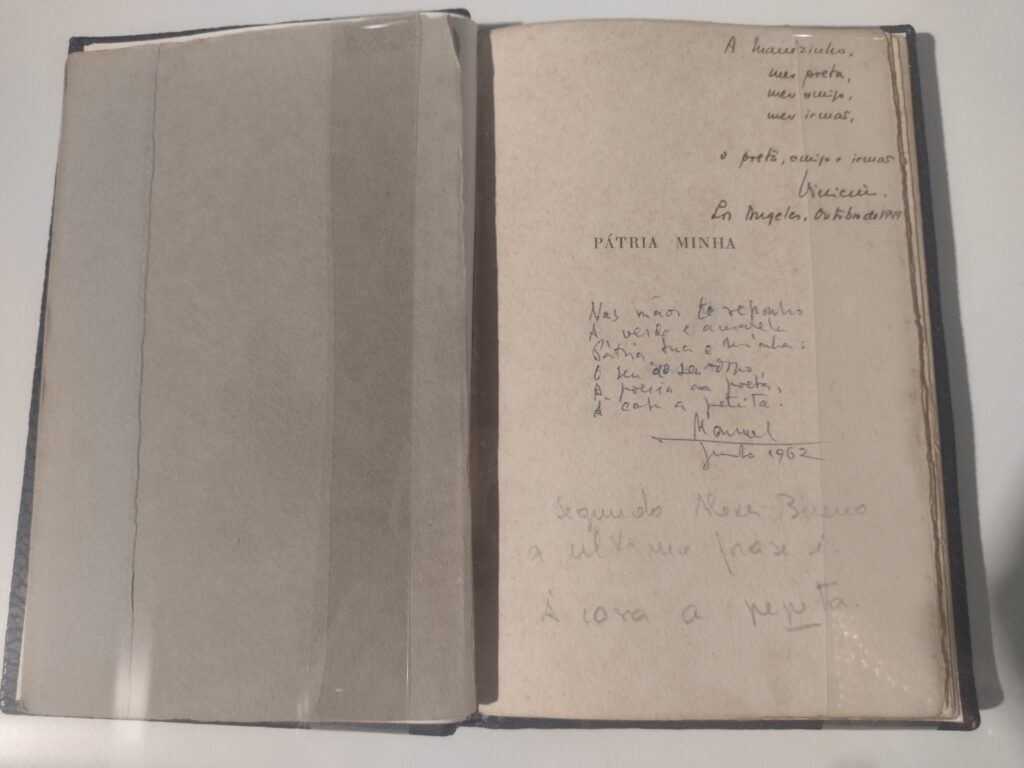 A Manuzinho,
meu poeta,
meu amigo,
meu irmão,
o poeta, amigo e irmão
Vinicius.
Los Angeles, Outubro de 1949
PÁTRIA MINHA
Nas mãos te reponho
A verde e amarela
Pátria tua e minha:
O seu do seu dono,
A poesia ao poeta,
À cara a
Manuel
Junho 1962
Segundo Alexei Bueno
a ultima frase é:
À cara a pepeta.